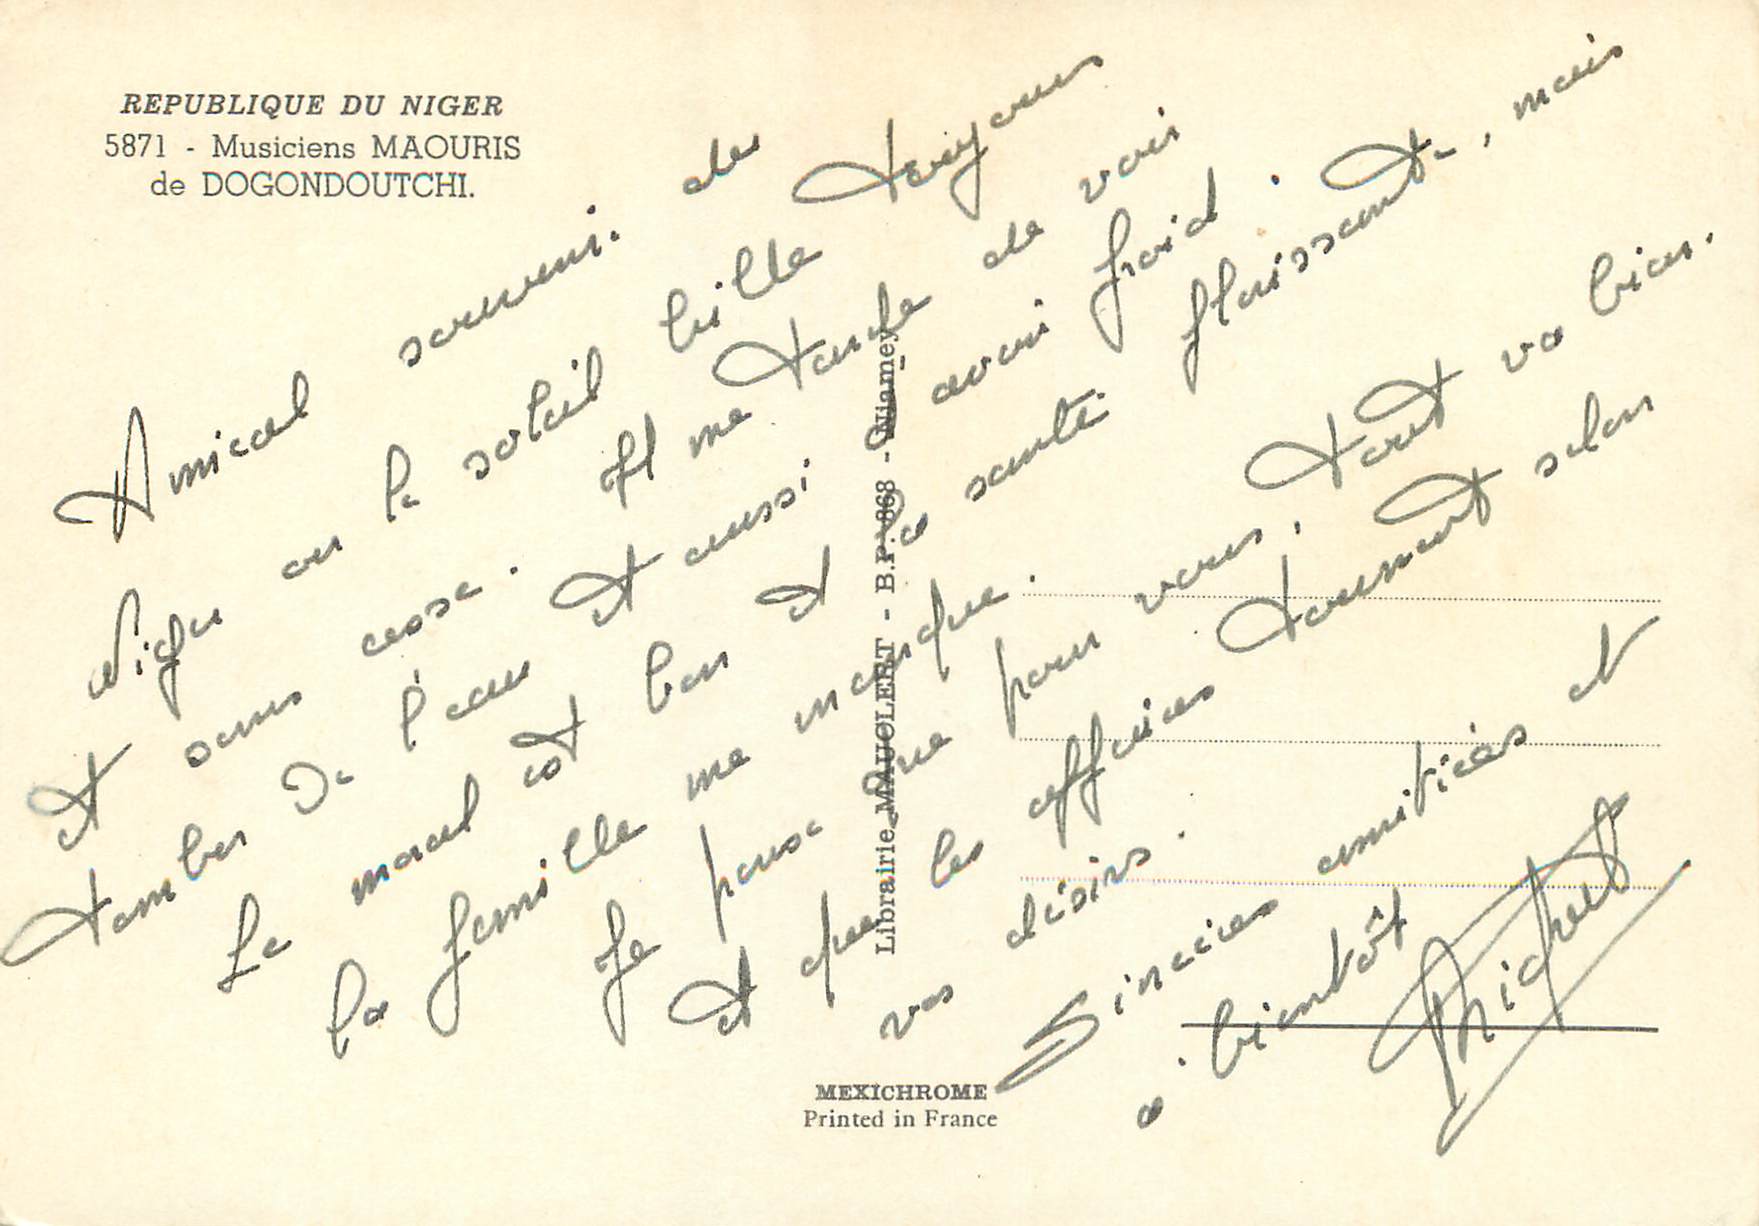 REPUBLIQUE DU NIGER
5871 - Musiciens MAOURIS
de DOGONDOUTCHI.
Amical souvenir du
Niger où le soleil brille toujours
et sans cesse. Il me tarde de voir
tomber de l'eau et aussi d'avoir froid.
Le moral est bon et la santé florissante, mais
la famille me manque.
Je pense que pour vous, tout va bien.
et que les affaires tournent selon
vos désirs.
Sincères amitiés et
à bientôt
Librairie MAUCLERT - B.P. 868 - Niamey
MEXICHROME
Printed in France